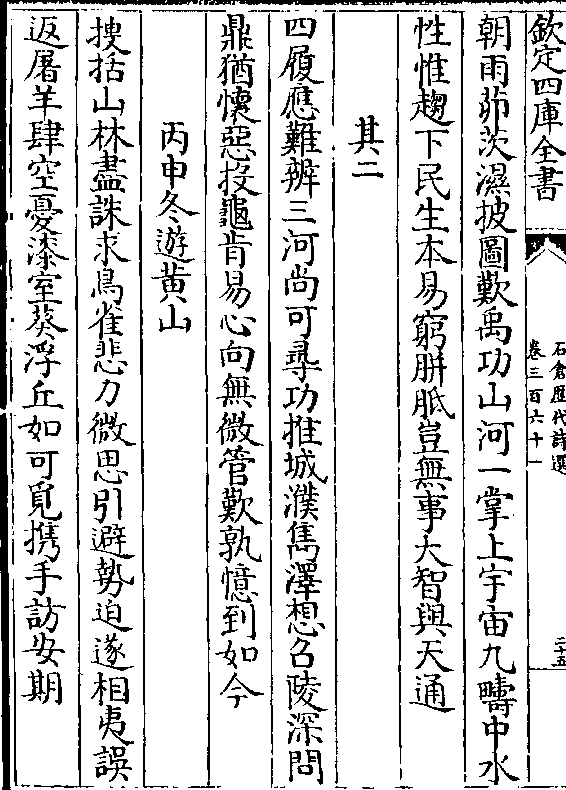 欽定四庫全書
石倉歷代詩選
卷三百六十一
二十五
朝雨茆茨濕披圖歎禹功山河一掌上宇宙九疇中水
性惟趨下民生本易窮胼胝豈無事大智與天通
其二
四履應難辨三河尚可尋功推城濮雋澤想召陵深問
鼎猶懷惡投龜肯易心向無微管歎孰憶到如今
丙申冬遊黄山
捜括山林盡誅求鳥雀悲力微思引避勢迫遂相夷誤
返屠羊肆空憂漆室葵浮丘如可覓携手訪安期